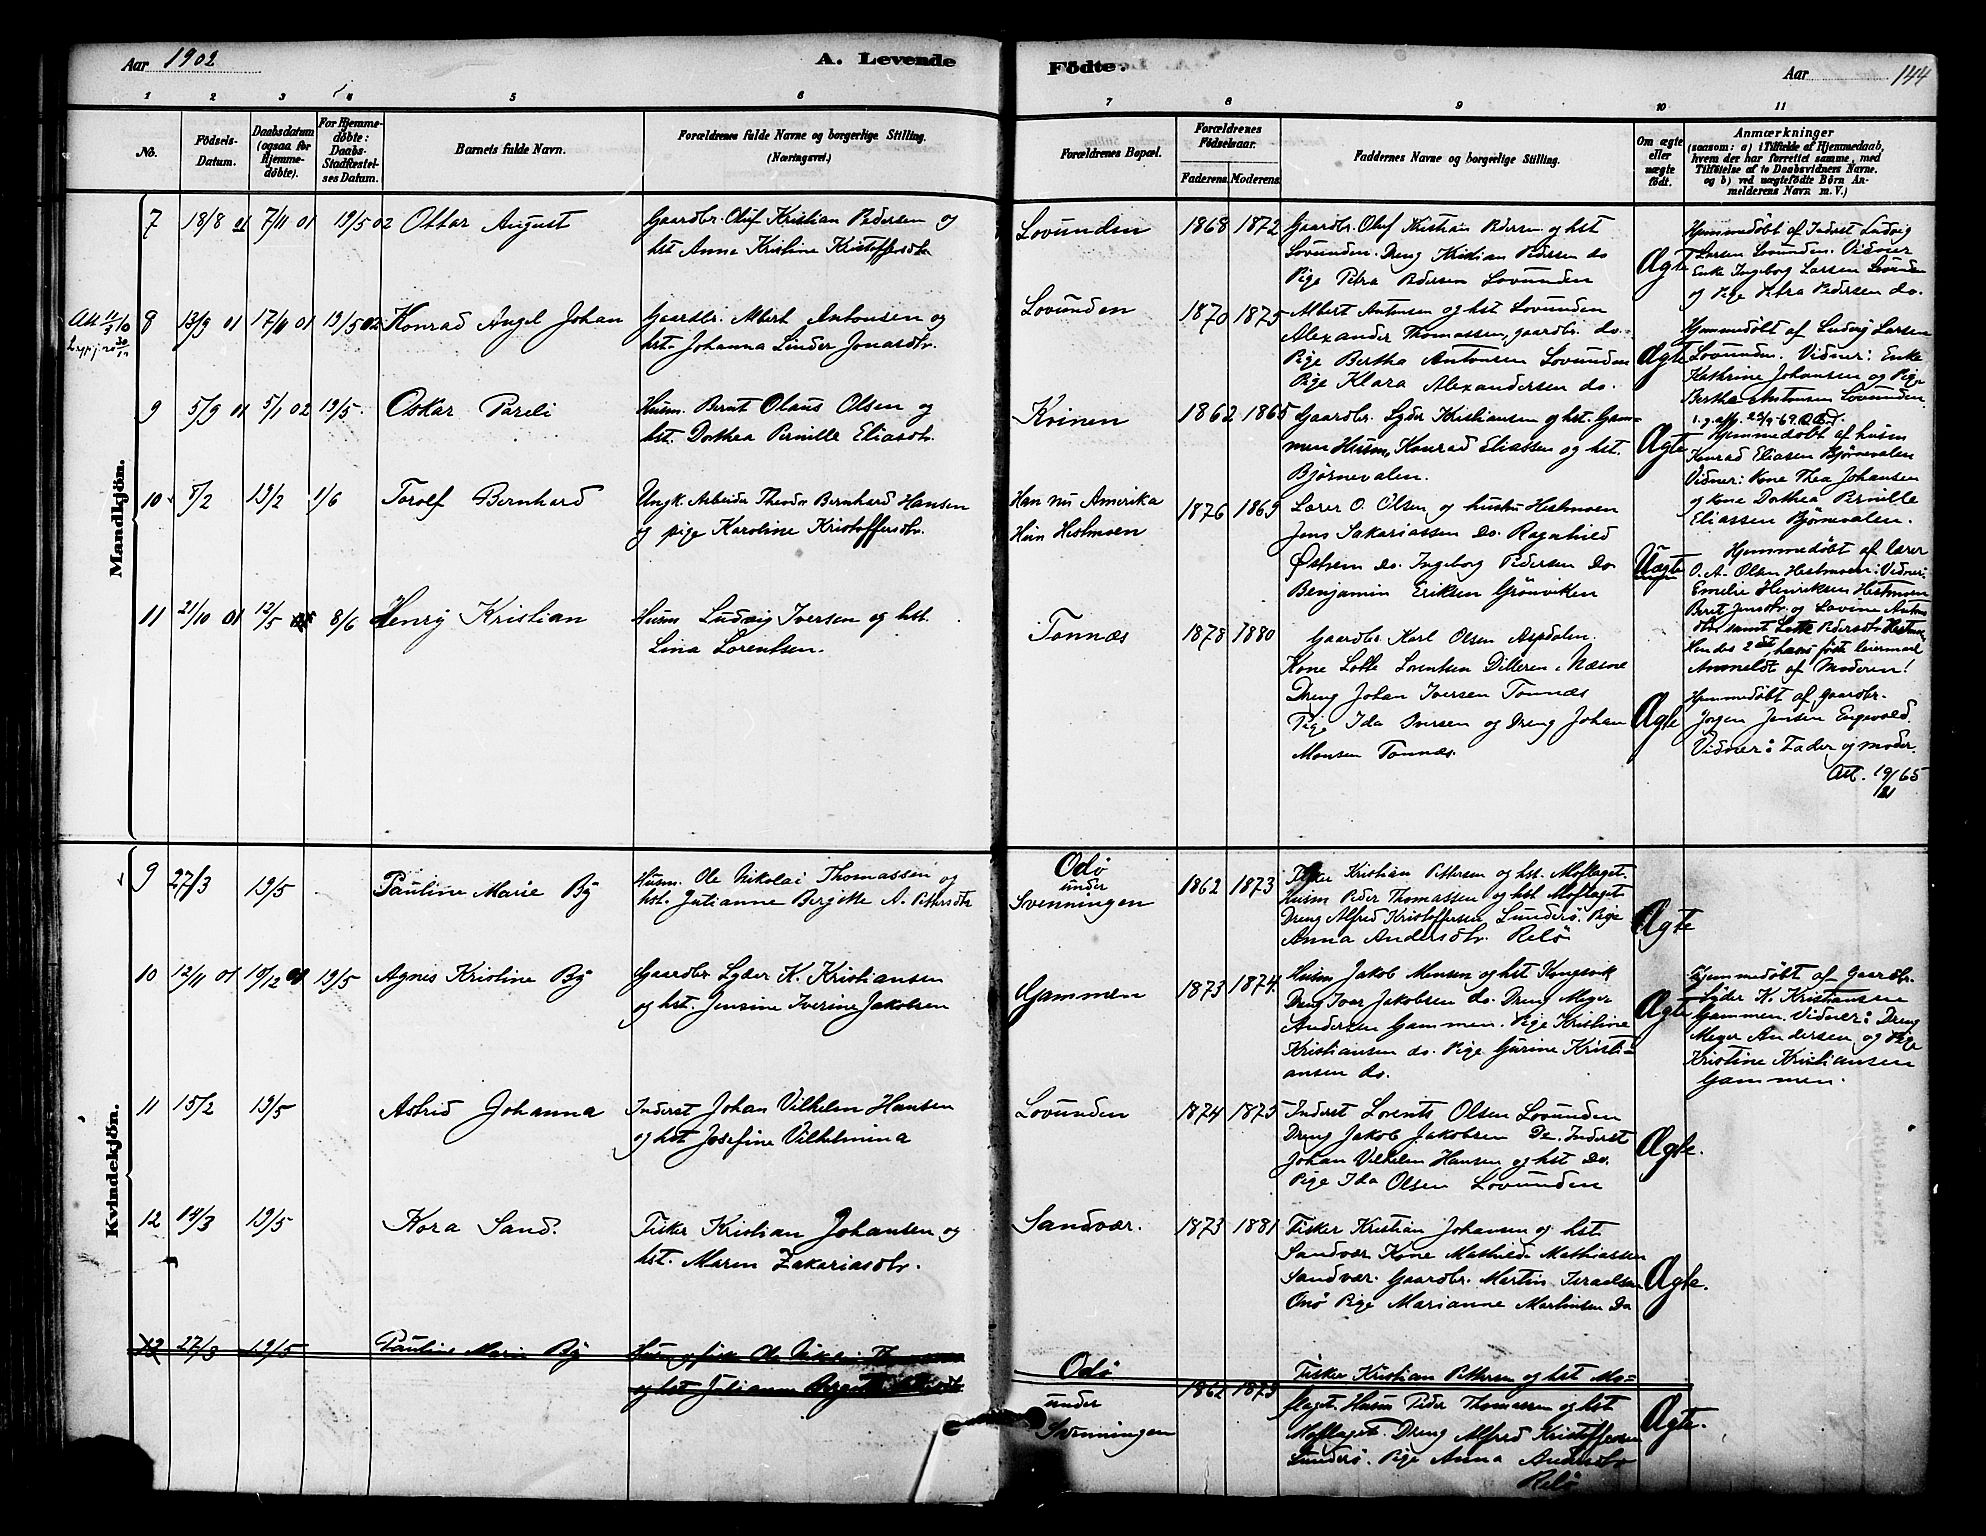 Aar 1902
A. Levende
Födte.
Aar
144
1 2 3 4 5 6 7 8 9 10 11
No.
Födsels-
Datum.
Daabsdatum
(ogsaa for
Hjemme-
döbte).
For Hjemme-
döbte:
Daabs-
Stadfæstel-
ses Datum.
Barnets fulde Navn.
Forældrenes fulde Navne og borgerlige Stilling.
(Næringsvei.)
Forældrenes Bopæl.
Forældrenes
Födselsaar.
Faderens. Moderens.
Faddernes Navne og borgerlige Stilling.
Om ægte
eller
uægte
födt.
Anmærkninger
(saasom: a) i Tilfælde af Hjemmedaab,
hvem der har forrettet samme, med
Tilföielse af to Daabsvidners Navne.
og b) ved uægtefödte Börn An-
melderens Navn m. V.)
Mandkjön.
7 18/8 01 7/11 01 19/5 02 Ottar August
Gaardbr. Oluf Kristian Pedersen og
hst. Anne Kristine Kristoffersdtr.
Lovunden 1868 1872
Gaardbr. Oluf Kristian Pedersen og hst
Lovunden. Dreng Kristian Pedersen do
Pige Petra Pedersen Lovunden
Ægte
Hjemmedøbt af Inderst Ludvig
Larsen Lovunden. Vidner
Enke Ingeborg Larsen Lovunden
og Pige Petra Pedersen do.
8 13/9 01 17/11 01 19/5 02 Konrad Angel Johan
Gaardbr. Albert Antonsen og
hst. Johanna Linder Jonasdtr.
Lovunden 1870 1875
Albert Antonsen og hst Lovunden
Alexander Thomassen, gaardbr. do.
Pige Bertha Antonsen Lovunden
Pige Klara Alexandersen do.
Ægte
Hjemmedøbt af Ludvig Larsen
Lovunden. Vidner: Enke
Kathrine Johansen og Pige
Bertha Antonsen Lovunden.
9 5/9 01 5/1 02 19/5. Oskar Pareli
Husm. Bernt Olaus Olsen og
hst. Dorthea Pernille Eliasdtr.
Kvinen 1862 1865
Gaardbr. Lyder Kristiansen og hst. Gam-
men Husm, Konrad Eliassen og hst.
Bjørnevalen.
Ægte
Hjemmedøbt af husm
Konrad Eliasen Bjørnevalen
Vidner: Kone Thea Johansen
og Kone Dorthea Pernille
Eliassen Bjørnevalen.
10 8/2 19/2 1/6 Torolf Bernhard
Ungk. Arbeider Theodor Bernhard Hansen
og pige Karoline Kristoffersdtr.
Han nu Amerika
Hun Hestmoen
1876 1869
Lærer O. Olsen og hustru Hestmoen
Jens Sakariassen do. Ragnhild
Østrem do. Ingeborg Pedersen do.
Benjamin Eriksen Grønviken
Uægte
Hjemmedøbt af lærer
O. A. Olsen Hestmoen. Vidner:
Emelie Henriksen Hestmoen
Beret Jensdtr. og Lovine Antons
dtr. samt Lotte Pedersdtr Hestmoen
Hendes 2det, hans første leiermaal
Anmeldt af Moderen!
11 21/10 01 12/5 8/6 Henry Kristian
Husm Ludvig Iversen og hst.
Lina Lorentsen.
Tonnæs 1878 1880
Gaardbr. Karl Olsen Aspdalen.
Kone Lotte Lorentsen Dilleren i Næsne
Dreng Johan Iversen Tonnæs
Pige Ida Iversen og Dreng Johan
Monsen Tonnæs.
Ægte
Hjemmedøbt af gaardbr.
Jørgen Jensen Engevold.
Vidner: Fader og moder.
Kvindekjön.
9 27/3 19/5 Pauline Marie By
Husm. Ole Nikolai Thomassen og
hst. Julianne Bergitte A. Pettersdtr
Odø
under
Svenningen
1862 1873
Fisker Kristian Pettersen og hst. Moflaget.
Husm Peder Thomassen og hst Moflaget
Dreng Alfred Kristoffersen Sunderø. Pige
Anna Andersdtr. Relø
Ægte
10 12/11 01 10/12 01 19/5 Agnes Kristine By
Gaardbr Lyder K. Kristiansen
og hst. Jensine Iverine Jakobsen
Gammen 1873 1874.
Husm Jakob Monsen og hst Kongsvik
Dreng Iver Jakobsen do. Dreng Meyer
Andersen Gammen. Pige Kristine
Kristiansen do. Pige Gurine Kristi-
ansen do.
Ægte
Hjemmedøbt af Gaardbr.
Lyder K. Kristiansen
Gammen. Vidner: Dreng
Meyer Andersen og Pige
Kristine Kristiansen
Gammen.
11 15/2 19/5 Astrid Johanna
Inderst Johan Vilhelm Hansen
og hst Josefine Vilhelmina
Lovunden 1874 1875
Inderst Lorents Olsen Lovunden
Dreng Jakob Jakobsen Do. Inderst
Johan Vilhelm Hansen og hst do.
Pige Ida Olsen Lovunden
Ægte.
12 14/3 19/5 Kora Sand.
Fisker Kristian Johansen og
hst. Maren Zakariasdtr.
Sandvær. 1873 1881
Fisker Kristian Johansen og hst
Sandvær Kone Mathilde Mathiassen
Sandvær. Gaardbr. Martin Israelsen
Onø Pige Marianne Martinsen do
Ægte.
27/3 19/5 Pauline Marie By
og hst Julianne
Odø
under
Svenningen
1862 1873
Fisker Kristian Pettersen og hst Mo-
flaget. Husm Peder Thomassen og hst
Moflaget. Dreng Alfred Kristoffersen
Sunderø. Pige Anna Andersdtr
Relø
Ægte.